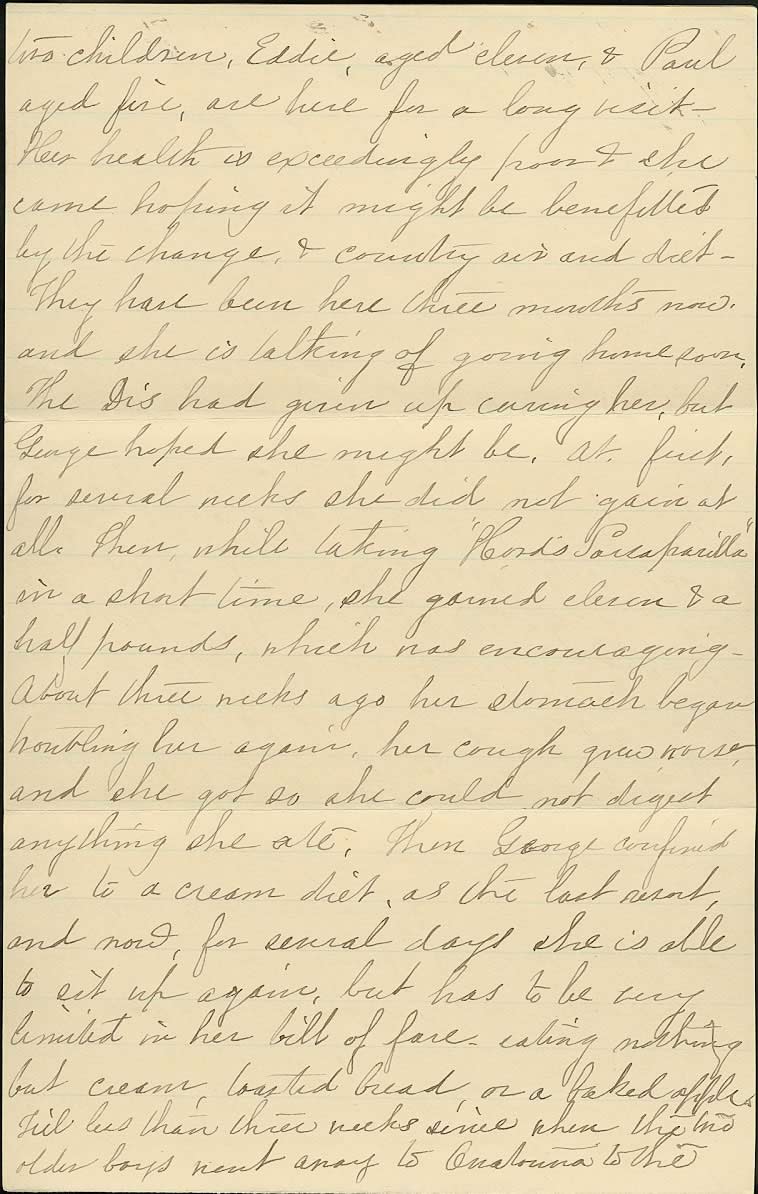 two children, Eddie, aged eleven, & Paul
aged five, are here for a long visit -
Her health is exceedingly poor & she
came hoping it might be benefitted
by the change, & country air and diet -
They have been here three months now.
and she is talking of going home soon.
The Drs had given up curing her, but
George hoped she might be. At first,
for several weeks she did not gain at
all. Then, while taking "Hood's Sarsaparilla"
in a short time, she gained eleven & a
half pounds, which was encouraging -
About three weeks ago her stomach began
troubling her again, her cough grew worse,
and she got so she could not digest
anything she ate. Then George confined
her to a cream diet, as the last resort,
and now, for several days she is able
to sit up again, but has to be very
limited in her bill of fare - eating nothing
but cream, toasted bread, or a baked apple.
Till less than three weeks since when the two
older boys went away to Owatonna to the